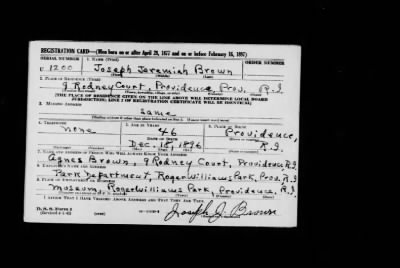 REGISTRATION CARD—(Men born on or after April 28, 1877 and on or before February 16, 1897)
SERIAL NUMBER 1. NAME (Print) ORDER NUMBER
U 1200 Joseph Jeremiah Brown
(First) (Middle) (Last)
2. PLACE OF RESIDENCE (Print)
9 Rodney Court, Providence, Prov. R.I.
(Number and street) (Town, township, village, or city) (County) (State)
[THE PLACE OF RESIDENCE GIVEN ON THE LINE ABOVE WILL DETERMINE LOCAL BOARD
JURISDICTION; LINE 2 OF REGISTRATION CERTIFICATE WILL BE IDENTICAL]
3. MAILING ADDRESS
Same
[Mailing address if other than place indicated on line 2. If same insert word same]
4. TELEPHONE 5. AGE IN YEARS 6. PLACE OF BIRTH
None 46 Providence,
DATE OF BIRTH
Dec. 18, 1896 R.I.
7. NAME AND ADDRESS OF PERSON WHO WILL ALWAYS KNOW YOUR ADDRESS
Agnes Brown, 9 Rodney Court, Providence, R.I.
8. EMPLOYER'S NAME AND ADDRESS
Park Department, Roger Williams Park, Prov. R.I.
9. PLACE OF EMPLOYMENT OR BUSINESS
Museum, Roger Williams Park, Providence, R.I.
I AFFIRM THAT I HAVE VERIFIED ABOVE ANSWERS AND THAT THEY ARE TRUE.
D. S. S. Form 1
(Revised 4-1-42)
Joseph J. Brown